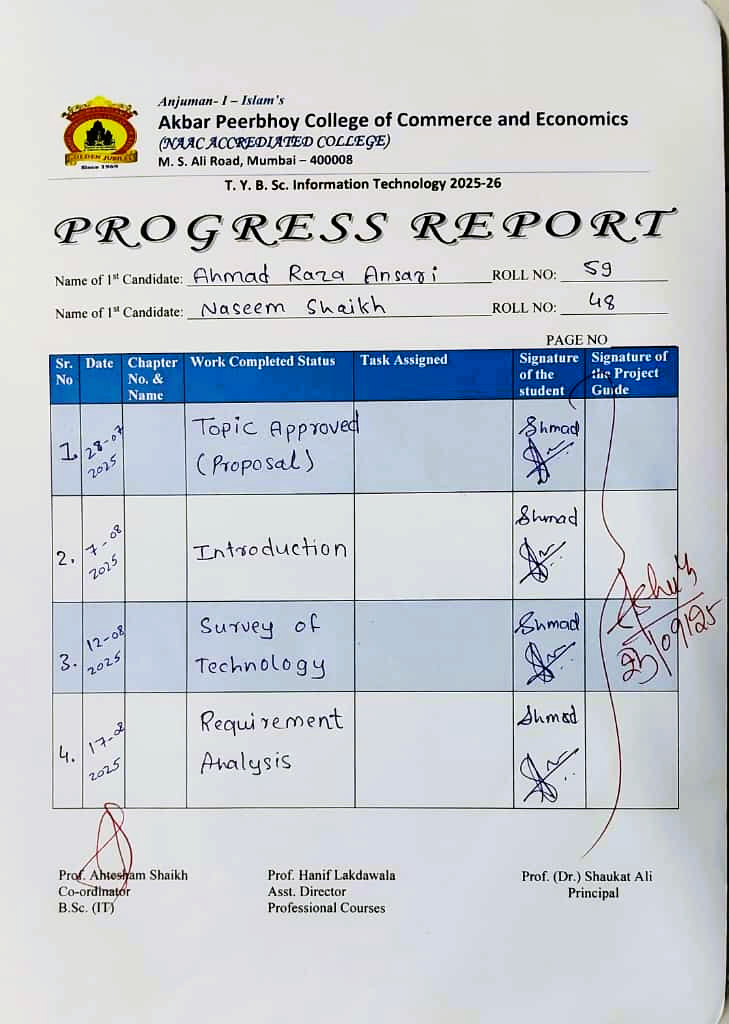 Anjuman- I – Islam's
Akbar Peerbhoy College of Commerce and Economics
(NAAC ACCREDIATED COLLEGE)
M. S. Ali Road, Mumbai – 400008
GOLDEN JUBILEE
Since 1969
T. Y. B. Sc. Information Technology 2025-26
PROGRESS REPORT
Name of 1st Candidate: Ahmad Raza Ansari ROLL NO: 59
Name of 1st Candidate: Naseem Shaikh ROLL NO: 48
PAGE NO
Sr. No Date Chapter No. & Name Work Completed Status Task Assigned Signature of the student Signature of the Project Guide
1. 28-07 2025 Topic Approved (Proposal) Ahmad
2. 7-08 2025 Introduction Ahmad
3. 12-08 2025 Survey of Technology Ahmad
4. 17-08 2025 Requirement Analysis Ahmad
23/09/25
Prof. Ahtesham Shaikh Prof. Hanif Lakdawala Prof. (Dr.) Shaukat Ali
Co-ordinator Asst. Director Principal
B.Sc. (IT) Professional Courses